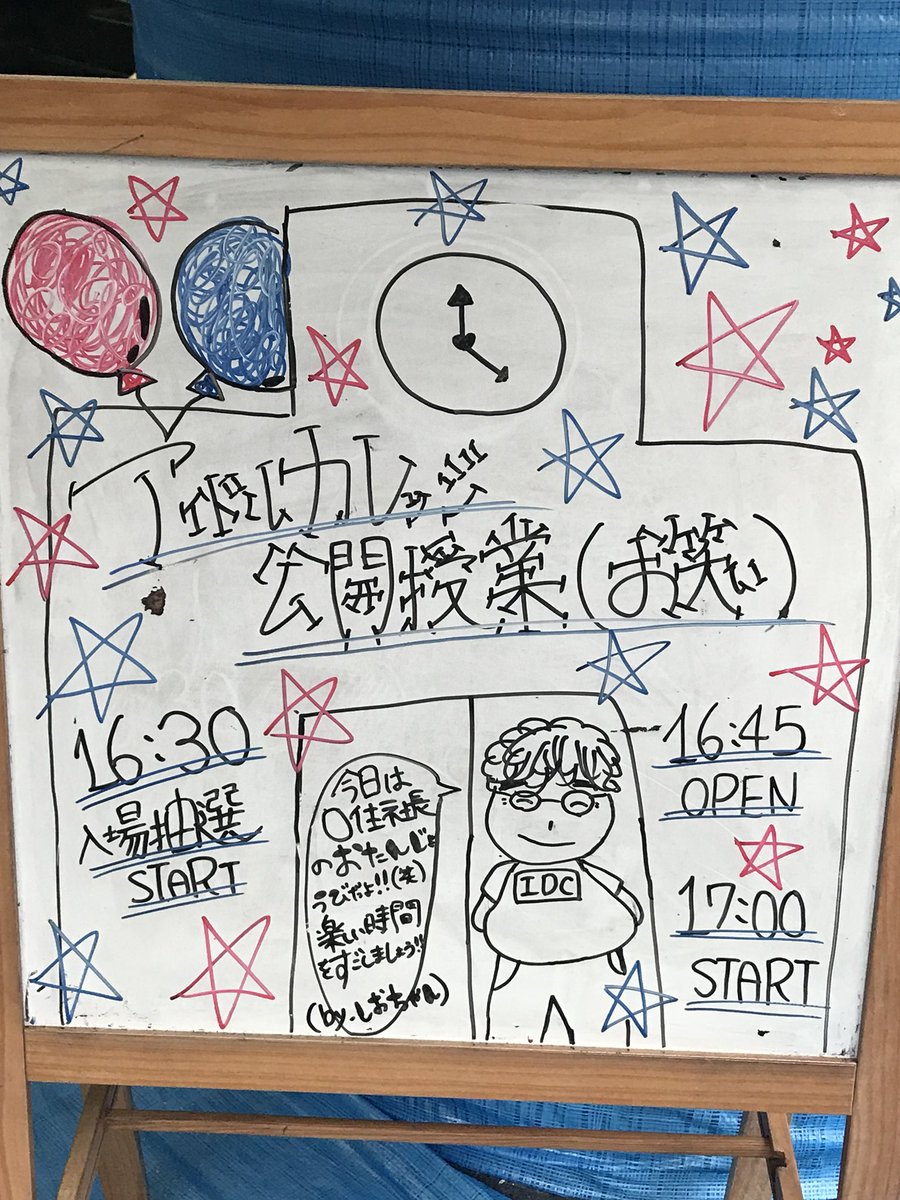 アイドルカレッジ!!!!
公開授業(お笑い)
16:30
入場抽選
START
今日は
〇住社長
のおたんじょ
うびだよ!!(笑)
楽しい時間
をすごしましょう!!
(by.しおちゃん)
IDC
16:45
OPEN
17:00
START